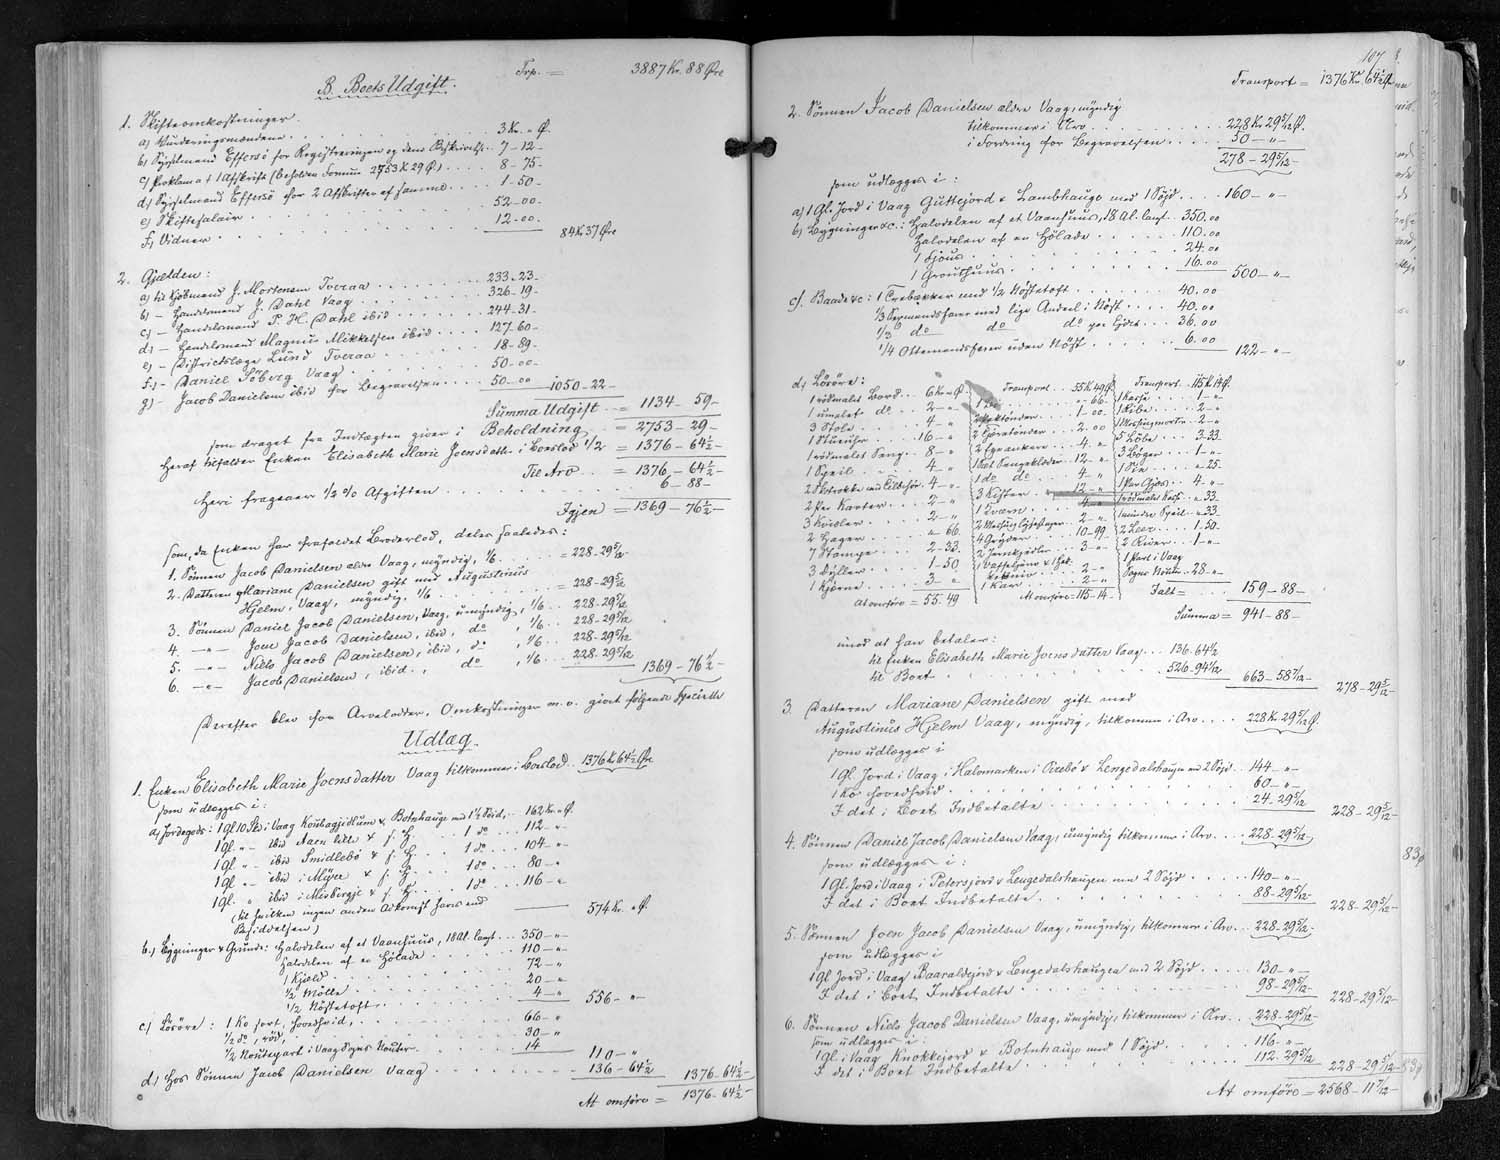 Trp. = 3887 Kr. 88 Øre
B. Boets Udgift.
1. Skifteomkostninger.
a) Vurderingsmændene 3 Kr. „ Ø.
b) Sysselmand Effersö for Registreringen og dens Beskrivelse 7-12-
c) Proklama + 1 Afskrift (beholden Formue 2753 K 29 Ø.) 8-75
d) Sysselmand Effersö for 2 Afskrifter af samme 1-50-
e) Skiftesalair 52-00.
f) Vidner 12-00.
84 K 37 Øre
2. Gjælden:
a) til Kjöbmand J. Mortensen Tveraa 233-23-
b) - Handelsmand J. Dahl Vaag 326-19-
c) - Handelsmand P. H. Dahl ibid 244-31-
d) - Handelsmand Magnus Mikkelsen ibid 127-60-
e) - Distriktslæge Lund Tveraa 18-89-
f) - Daniel Söberg Vaag 50-00-
g) - Jacob Danielsen ibid for Begravelsen 50-00
1050-22-
Summa Udgift = 1134-59-
som draget fra Indtægten giver i Beholdning = 2753-29-
Heraf tilfalder Enken Elisabeth Marie Joensdatter i Boeslod 1/2 = 1376-64½-
Til Arv = 1376-64½-
Heri fragaaer 1/2 % Afgiften 6-88-
Igjen = 1369-76½-
som, da Enken har frafaldet Broderlod, deles saaledes:
1. Sönnen Jacob Danielsen ældre Vaag, myndig, 1/6 = 228-29 5/12
2. Datteren Mariane Danielsen gift med Augustinus
Hjelm, Vaag, myndig, 1/6 = 228-29 5/12
3. Sönnen Daniel Jacob Danielsen, Vaag, umyndig, 1/6 228-29 5/12
4. -„- Joen Jacob Danielsen, ibid, do, 1/6 228-29 5/12
5. -„- Niels Jacob Danielsen, ibid, do, 1/6 228-29 5/12
6. -„- Jacob Danielsen, ibid, do, 1/6 228-29 5/12
1369-76½-
Derefter blev for Arvelodder, Omkostninger m. v. gjort følgende specielle
Udlæg.
1. Enken Elisabeth Marie Joensdatter Vaag tilkommer i Boeslod 1376 K 64½ Øre
som udlægges i:
a) Jordegods: 1 Gl 10 Sk i Vaag & Botnhauge med 1½ Söid 162 Kr „ Ø.
1 Gl. „ - ibid Aaen lille & f. H. 1 do 112 „
1 gl. „ ibid Smidlebö & f. H. 1 do 104-„
1 Gl. „ - ibid i Myren & f. H. 1 do 80-„
1 Gl. „ ibid i & f. H. 1 do 116-„
(til hvilken ingen anden Adkomst haves end
Besiddelsen) 574 Kr. „ Ø.
b) Bygninger & Grunde: Halvdelen af et Vaanhuus, 18 Al. langt 350-„
Halvdelen af en Hölade 110-„
1 Hjeld 72-„
½ Mölle 20-„
½ Nöstetoft 4-„
556-„
c) Lösöre: 1 Ko sort, hovedhvid, 66-„
½ do, röd, 30-„
½ i Vaag Sogns 14
110-„
d) Hos Sönnen Jacob Danielsen Vaag 136-64½ 1376-64½-
At omföre = 1376-64½-
107
Transport = 1376 Kr. 64½ Ø
2. Sönnen Jacob Danielsen ældre Vaag, myndig
tilkommer i Arv 228 Kr 29 5/12 Ø.
i Fordring for Begravelsen 50-„
278-29 5/12-
som udlægges i:
a) 1 Gl. Jord i Vaag Guttejord & Lambhauge med 1 Söjd 160-„
b) Bygninger &c.: Halvdelen af et Vaanhuus, 18 Al. langt 350.00
Halvdelen af en Hölade 110.00
1 Hjous 24.00
1 Grouthuus 16.00
500-„
c) Baade &c: 1 Trebækker med ½ Nöstetoft 40.00
1/3 Sexmandsfarer med lige Andeel i Nöst 40.00
1/3 do do do 36.00
1/4 Ottemandsfarer uden Nöst 6.00
122-„
d) Lösöre:
1 rödmalet Bord 6 Kr „ Ø.
1 umalet do 2-„
3 Stole 4-„
1 Stueuhr 16-„
1 rödmalet Seng 8-„
1 Speil 4-„
4-„
2 Par Karter 2-„
3 2-„
2 „ 66
7 Stampe 2-33
3 Bytter 1-50
1 Kjerne 3-„
At omföre = 55.49
Transport 55 K 49 Ø
„ 66
1-00
2 2.00
4-„
1 Set Sengeklæder 12-„
1 do do 4-„
3 Kister 12-„
1 Kværn 4-„
2 2-„
4 Gryder 10-99
2 Jernkjedler 3-„
2-„
1 Kar 2-„
At omföre = 115-14
Transport 115 K 14 Ø.
1 1-„
1 2-„
1 Messingmorter 2-„
5 3-33
3 Böger 1-„
1 „ 25-
1 Par 4-„
1 rödmalet „ 33
1 mindre Speil „ 33
2 Leer 1-50
2 River 1-„
1 Part i Vaag
Sogns 28-„
Ialt = 159-88-
Summa = 941-88-
mod at han betaler:
til Enken Elisabeth Marie Joensdatter Vaag 136.64½
til Boet 526-94 1/12
663-58 7/12- 278-29 5/12-
3. Datteren Mariane Danielsen gift med
Augustinus Hjelm Vaag, myndig, tilkommer i Arv 228 Kr. 29 5/12 Ø.
som udlægges i
1 Gl. Jord i Vaag i Halvmarken i & Lengedalshaugen med 2 Söjd 144-„
1 Ko hovedhvid 60-„
I det i Boet Indbetalte 24.29 5/12 228-29 5/12-
4. Sönnen Daniel Jacob Danielsen Vaag, umyndig tilkommer i Arv 228-29 5/12-
som udlægges i:
1 Gl. Jord i Vaag i Petersjord & Lengedalshaugen med 2 Söjd 140-„
I det i Boet Indbetalte 88-29 5/12- 228-29 5/12-
5. Sönnen Joen Jacob Danielsen Vaag, umyndig, tilkommer i Arv 228-29 5/12-
som udlægges i
1 Gl Jord i Vaag & Lengedalshaugen med 2 Söjd 130-„
I det i Boet Indbetalte 98-29 5/12- 228-29 5/12-
6. Sönnen Niels Jacob Danielsen Vaag, umyndig, tilkommer i Arv 228-29 5/12-
som udlægges i:
1 Gl. i Vaag Knokkejord & Botnhauge med 1 Söjd 116-„
I det i Boet Indbetalte 112.29 5/12 228-29 5/12-
At omföre = 2568-11 7/12-